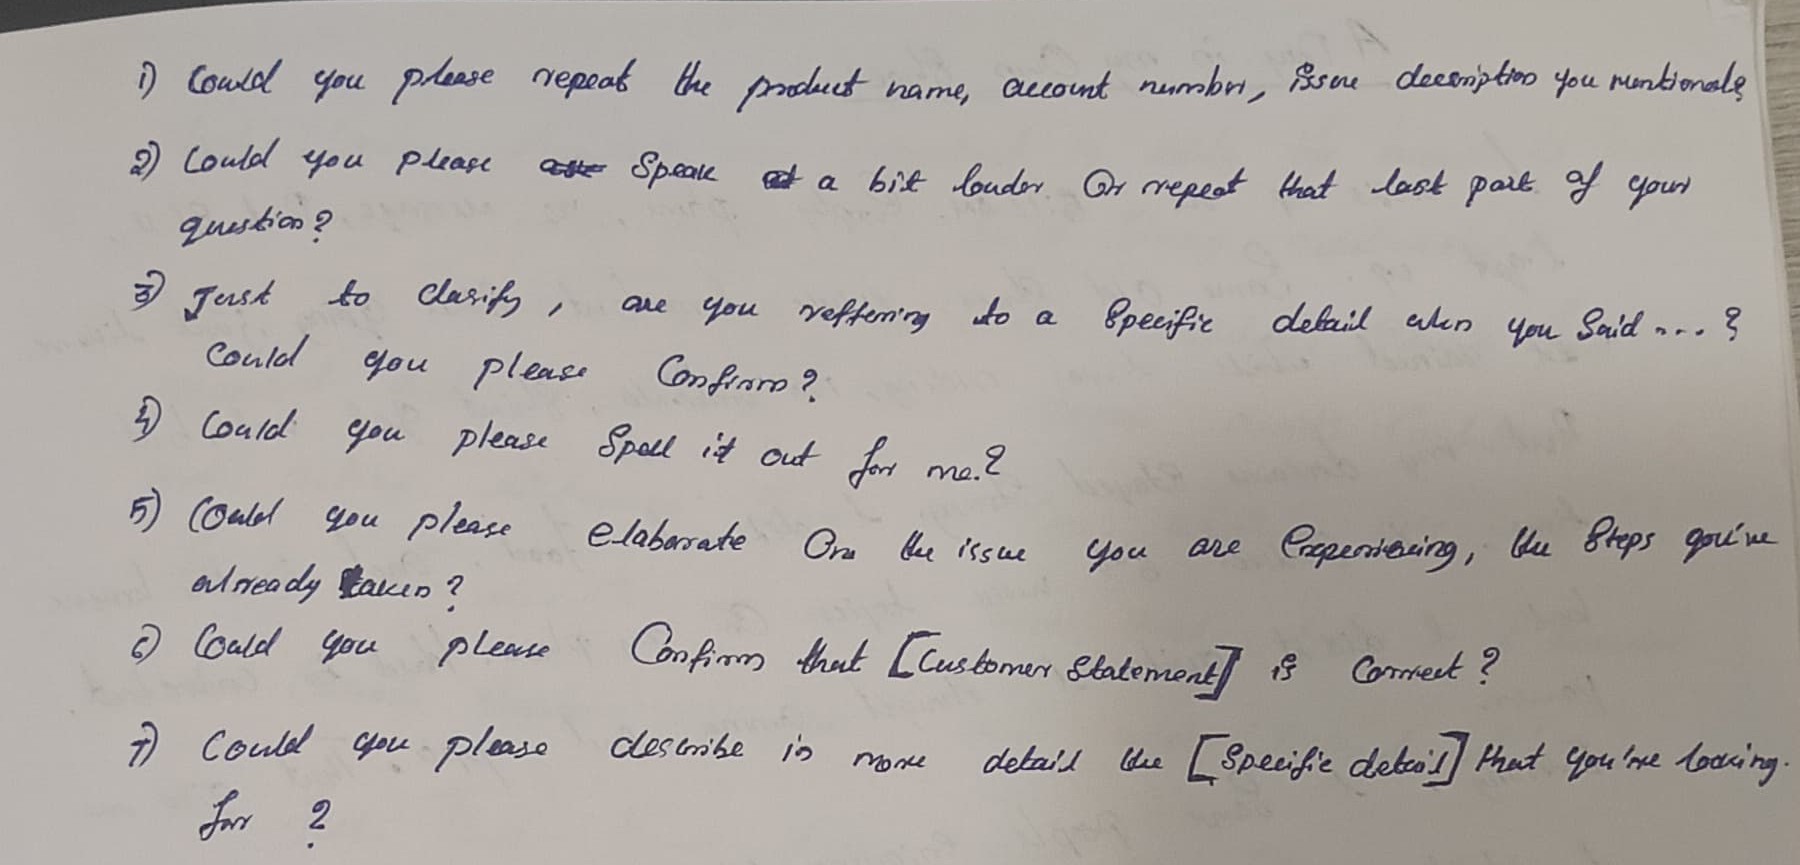 1) Could you please repeat the product name, account number, issue description you mentioned?
2) Could you please speak a bit louder Or repeat that last part of your
question?
3) Just to clarify, are you reffering to a Specific detail when you Said ...?
Could you please Confirm?
4) Could you please Spell it out for me.?
5) Could you please elaborate On the issue you are Experiencing, the Steps you've
already taken?
6) Could you please Confirm that [Customer Statement] is Correct?
7) Could you please describe in more detail the [Specific detail] that you're looking.
for ?